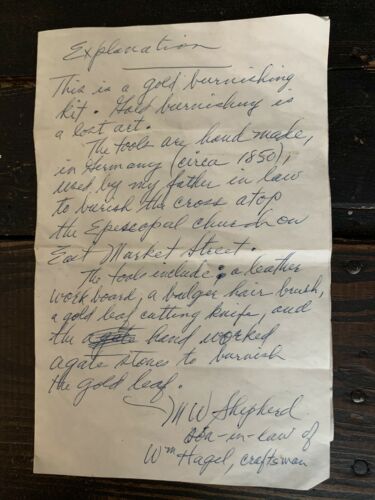 Explanation
This is a gold burnishing
kit. Gold burnishing is
a lost art.
The tools are hand made,
in Germany (circa 1850),
used by my father in law
to burish the cross atop
the Episcopal church on
East Market Street.
The tools include; a leather
work board, a badger hair brush,
a gold leaf cutting knife, and
the agate hand worked
agate stones to burnish
the gold leaf.
M W Shepherd
son-in-law of
Wm Hagel, craftsman